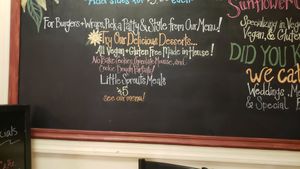 Add sides for
each
For Burgers + Wraps, Pick a Patty & Style from Our Menu!
Try Our Delicious Desserts...
All Vegan + Gluten Free Made in House!
No Bake Cookies, Chocolate Mousse, and
Cookie Dough Parfaits!
Little Sprouts Meals
$5
see our menu!
Sunflower
Specializing in
Vegan & Glute
DID YOU
we ca
Weddings, Me
& Special
cials